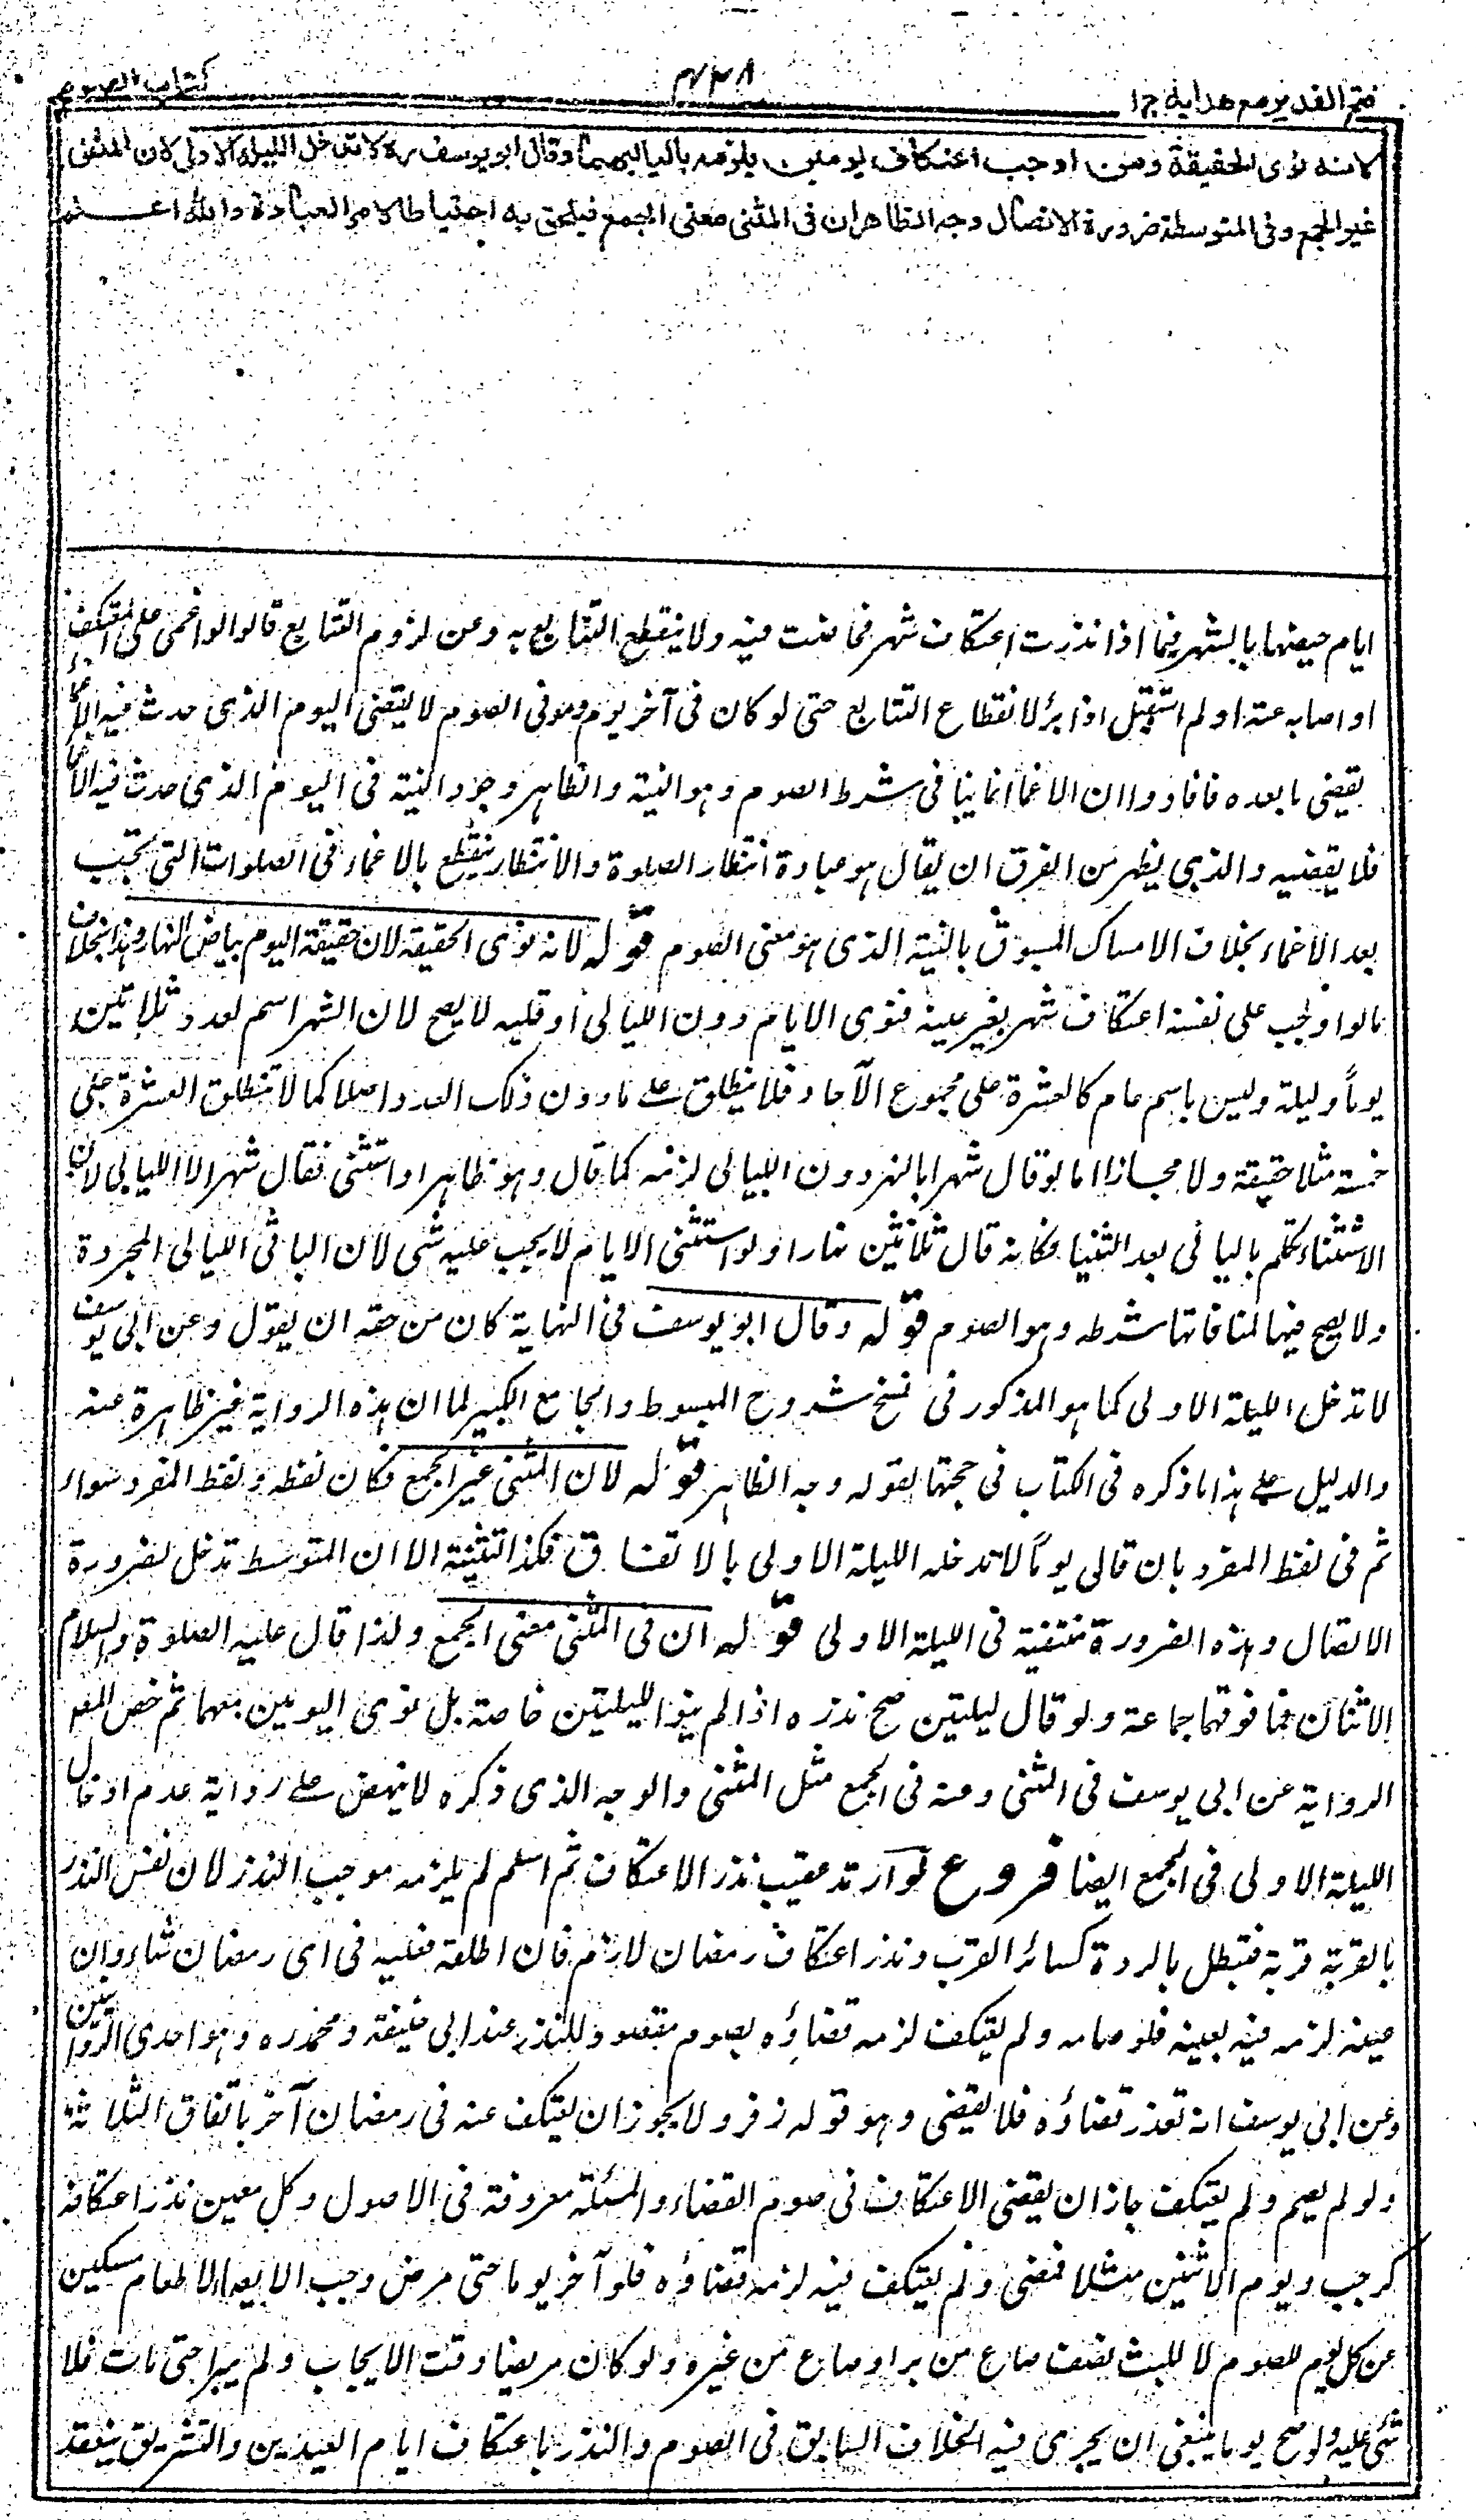 فتح القدير مع هداية ج ١
٤٣٨
كتاب الصوم
لانه نوى الحقيقة ومن اوجب اعتكاف يومين يلزمه بلياليهما وقال ابو يوسف ره لا تدخل الليلة الاولى لان المثنى
غير الجمع وفى المتوسطة ضرورة الاتصال وجه الظاهر ان فى المثنى معنى الجمع فيلحق به احتياطا لامر العبادة والله اعلم
ايام حيضها بالشهر فيما اذا نذرت اعتكاف شهر فحاضت فيه ولا ينقطع التتابع به وعن لزوم التتابع قالوا لو اغمى على المعتكف
او اصابه عته او لم استقبل اذا برأ لانقطاع التتابع حتى لو كان فى آخر يوم وفى الصوم لا يقضى اليوم الذى حدث فيه الاغماء
يقضى ما بعده فافادوا ان الاغماء انما ينافى شرط الصوم وهو النية والظاهر وجود النية فى اليوم الذى حدث فيه الاغماء
فلا يقضيه والذى يظهر من الفرق ان يقال هو عبادة انتظار الصلوة والانتظار ينقطع بالاغماء فى الصلوات التى تجب
بعد الاغماء بخلاف الامساك المسبوق بالنية الذى هو معنى الصوم قوله لانه نوى الحقيقة لان حقيقة اليوم بياض النهار وهذا بخلاف
ما لو اوجب على نفسه اعتكاف شهر بغير عينه فنوى الايام دون الليالى او قلبه لا يصح لان الشهر اسم لعدد ثلاثين
يوماً وليلة وليس باسم عام كالعشرة على مجموع الآحاد فلا ينطلق على ما دون ذلك العدد اصلا كما لا تنطلق العشرة على
خمسة مثلا حقيقة ولا مجازا اما لو قال شهرا بالنهر دون الليالى لزمه كما قال وهو ظاهر او استثنى فقال شهرا الا الليالى لان
الاستثناء تكلم بالباقى بعد الثنيا فكانه قال ثلاثين نهارا ولو استثنى الايام لا يجب عليه شى لان الباقى الليالى المجردة
ولا يصح فيها لمنافاتها شرطه وهو الصوم قوله وقال ابو يوسف فى النهاية كان من حقه ان يقول وعن ابى يوسف
لا تدخل الليلة الاولى كما هو المذكور فى نسخ شروح المبسوط والجامع الكبير لما ان هذه الرواية غير ظاهرة عنه
والدليل على هذا ما ذكره فى الكتاب فى حجتها بقوله وجه الظاهر قوله لان المثنى غير الجمع فكان لفظه ولفظ المفرد سواء
ثم فى لفظ المفرد بان قال يوماً لا تدخله الليلة الاولى بالاتفاق فكذا التثنية الا ان المتوسط تدخل لضرورة
الاتصال وهذه الضرورة منتفية فى الليلة الاولى قوله ان فى المثنى معنى الجمع ولذا قال عليه الصلوة والسلام
الاثنان فما فوقهما جماعة ولو قال ليلتين صح نذره اذا لم ينو الليلتين خاصة بل نوى اليومين معهما ثم خص المص
الرواية عن ابى يوسف فى المثنى وعنه فى الجمع مثل المثنى والوجه الذى ذكره لا ينهض على رواية عدم ادخال
الليلة الاولى فى الجمع ايضا فروع لو ارتد عقيب نذر الاعتكاف ثم اسلم لم يلزمه موجب النذر لان نفس النذر
بالقربة قربة فتبطل بالردة كسائر القرب ونذر اعتكاف رمضان لازم فان اطلقه فعليه فى اى رمضان شاء وان
عينه لزمه فيه بعينه فلو صامه ولم يعتكف لزمه قضاؤه بصوم مقصود للنذر عند ابى حنيفة ومحمد ره وهو احدى الروايتين
وعن ابى يوسف انه تعذر قضاؤه فلا يقضى وهو قوله زفر ولا يجوز ان يعتكف عنه فى رمضان آخر باتفاق الثلاثة
ولو لم يصم ولم يعتكف جاز ان يقضى الاعتكاف فى صوم القضاء والمسئلة معروفة فى الاصول وكل معين نذر اعتكافه
كرجب ويوم الاثنين مثلا فمضى ولم يعتكف فيه لزمه قضاؤه فلو آخر يوما حتى مرض وجب الايصاء لاطعام مسكين
عن كل يوم للصوم لا للبث نصف صاع من بر او صاع من غيره ولو كان مريضا وقت الايجاب ولم يبرا حتى مات فلا
شى عليه ولو صح يوما ينبغى ان يجرى فيه الخلاف السابق فى الصوم والنذر باعتكاف ايام العيدين والتشريق ينعقد